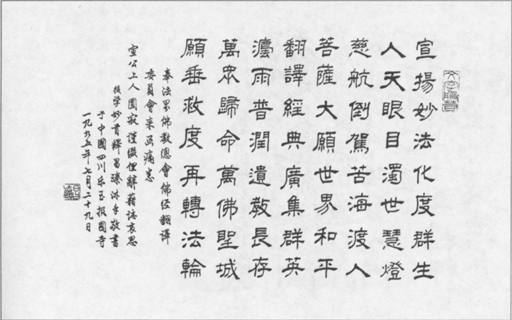 宣揚妙法化度群生
人天眼目濁世慧燈
慈航倒駕苦海渡人
菩薩大願世界和平
翻譯經典廣集群英
澍雨普潤遺教長存
萬眾歸命萬佛聖城
願垂救度再轉法輪
奉法界佛教總會佛經翻譯
委員會來函痛悉
宣公上人圓寂謹識俚辭藉誌哀忠
後學
于中國四川乐至报國寺
一九九五年七月二十九日